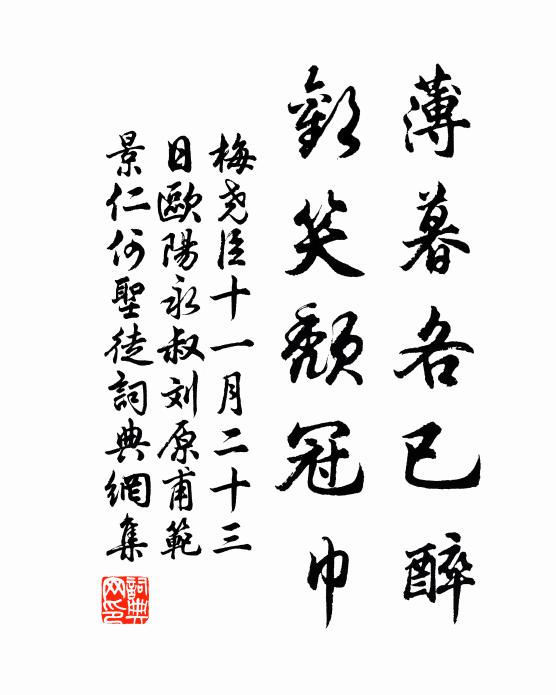 薄暮各已醉
歡笑頹冠巾
梅尧臣十一月二十三
日歐陽永叔刘原甫範
景仁何聖徒詞典網集
詞典網印